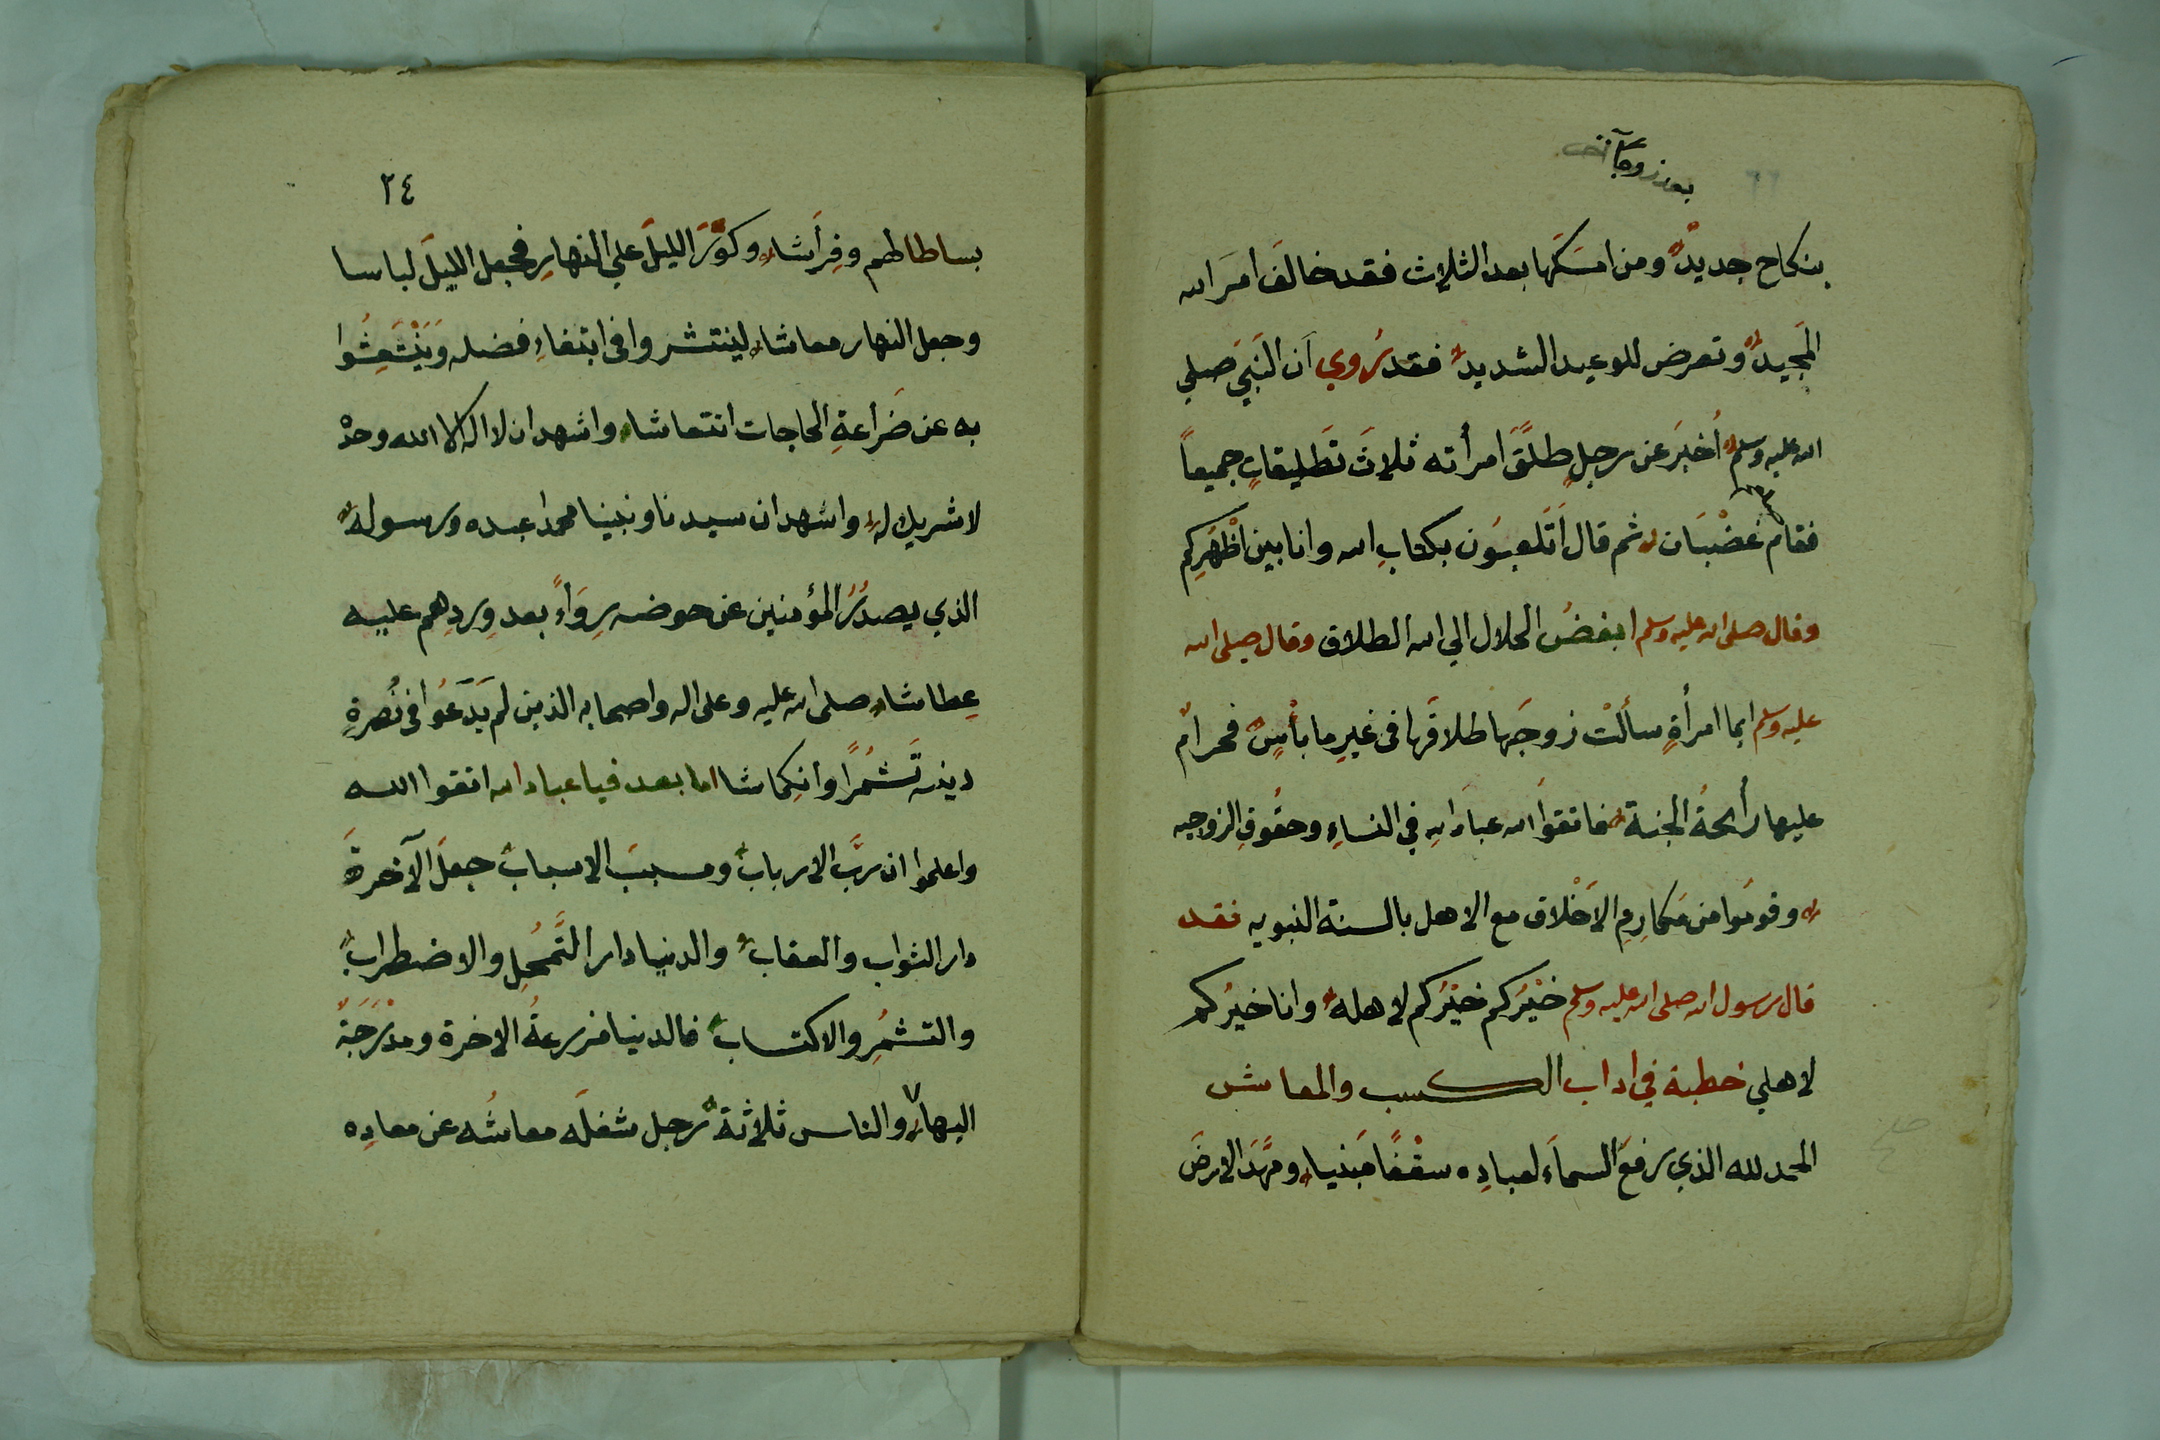 بعد زوج آخر
بنكاح جديد ومن امسَكَها بعد الثلاث فقد خالَفَ امرَ الله
المجيد وتعرض للوعيد الشديد فقد رُوي أن النَبيَ صلي
الله عليه وسلم أُخبَر عن رجلٍ طلَّقَ امرأته ثلاثَ تَطليقاتٍ جميعاً
فقام غضْبَان ثم قال أتَلعبُون بكتابِ الله وانا بين أظْهُرِكم
وقال صلى الله عليه وسلم ابغضُ الحلال الي الله الطلاق وقال صلى الله
عليه وسلم ايما امرأةٍ سألتْ زوجَها طلاقَها في غيرِ ما بأْسٍ فحرامٌ
عليها رأئحةُ الجنة فاتقوا الله عبادَ الله في النساءِ وحقُوقِ الزوجيه
وقومُوا من مَكارِمِ الأخْلاق مع الاهل بالسنة النبويه فقد
قال رسول الله صلى الله عليه وسلم خيْرُكم خيْرُكم لاهله وانا خيرُكم
لاهلي خطبة في اداب الكسب والمعاش
الحمد لله الذي رفعَ السماءَ لعبادِه سقْفًا مَبنيا ومهَّدَ الارضَ
٢٤
بساطا لهم وفِرَأشا وكوَّرَ الليلَ علي النهارِ فجعل الليلَ لباسا
وجعل النهار معاشا لينتشروا في ابتغاءِ فضله وَيَنْتَعِشُوا
به عن ضَرأعةِ الحاجات انتعاشا واشهد ان لا اله الا الله وحدْه
لا شريك له واشهد ان سيدنا ونبينا محمدا عبده ورسوله
الذي يصدُرُ المؤمنين عن حوضه رِوَاءً بعد وِردِهم عليه
عِطاشا صلى الله عليه وعلى اله واصحابه الذين لم يَدَعُوا في نُصرةِ
دينه تَشمُرًا وانكِماشا اما بعد فيا عباد الله اتقوا الله
واعلموا ان ربَّ الارباب ومسببَ الاسباب جعلَ الآخرةَ
دار الثواب والعقاب والدنيا دار التَّمَحُلِ والاضطراب
والتشمُرِ والاكتساب فالدنيا مزرعةُ الاخرة ومدْرَجَةٌ
اليها والناس ثلاثة رجل شغلَه معاشُه عن معادِه